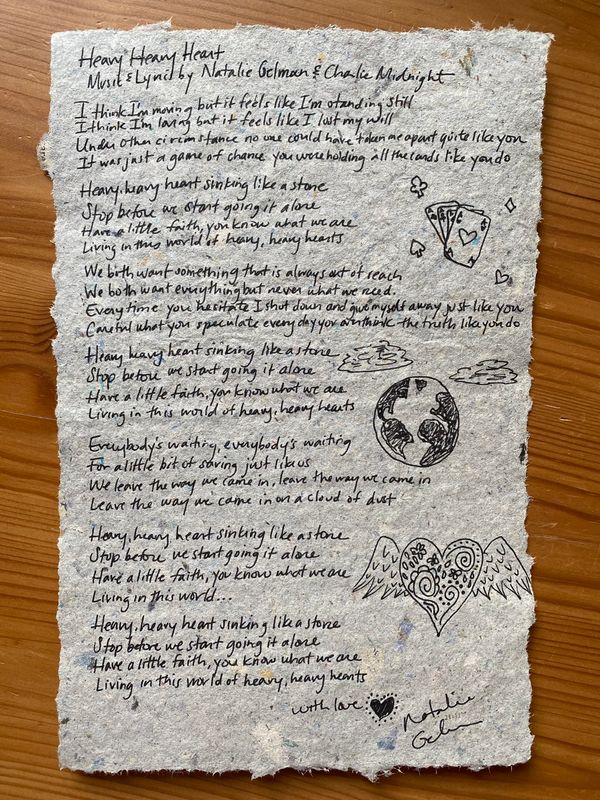 Heavy Heavy Heart
Music & Lyrics by Natalie Gelman & Charlie Midnight
I think I'm moving but it feels like I'm standing still
I think I'm loving but it feels like I lost my will
Under other circumstance no one could have taken me apart quite like you
It was just a game of chance you were holding all the cards like you do
Heavy, heavy heart sinking like a stone
Stop before we start going it alone
Have a little faith, you know what we are
Living in this world of heavy, heavy hearts
We both want something that is always out of reach
We both want everything but never what we need.
Every time you hesitate I shut down and give myself away just like you
Careful what you speculate every day you think the truth like you do
Heavy heavy heart sinking like a stone
Stop before we start going it alone
Have a little faith, you know what we are
Living in this world of heavy, heavy hearts
Everybody's waiting, everybody's waiting
For a little bit of saving just like us
We leave the way we came in, leave the way we came in
Leave the way we came in on a cloud of dust
Heavy, heavy heart sinking like a stone
Stop before we start going it alone
Have a little faith, you know what we are
Living in this world...
Heavy, heavy heart sinking like a stone
Stop before we start going it alone
Have a little faith, you know what we are
Living in this world of heavy, heavy hearts
with love
Natalie
Gelman